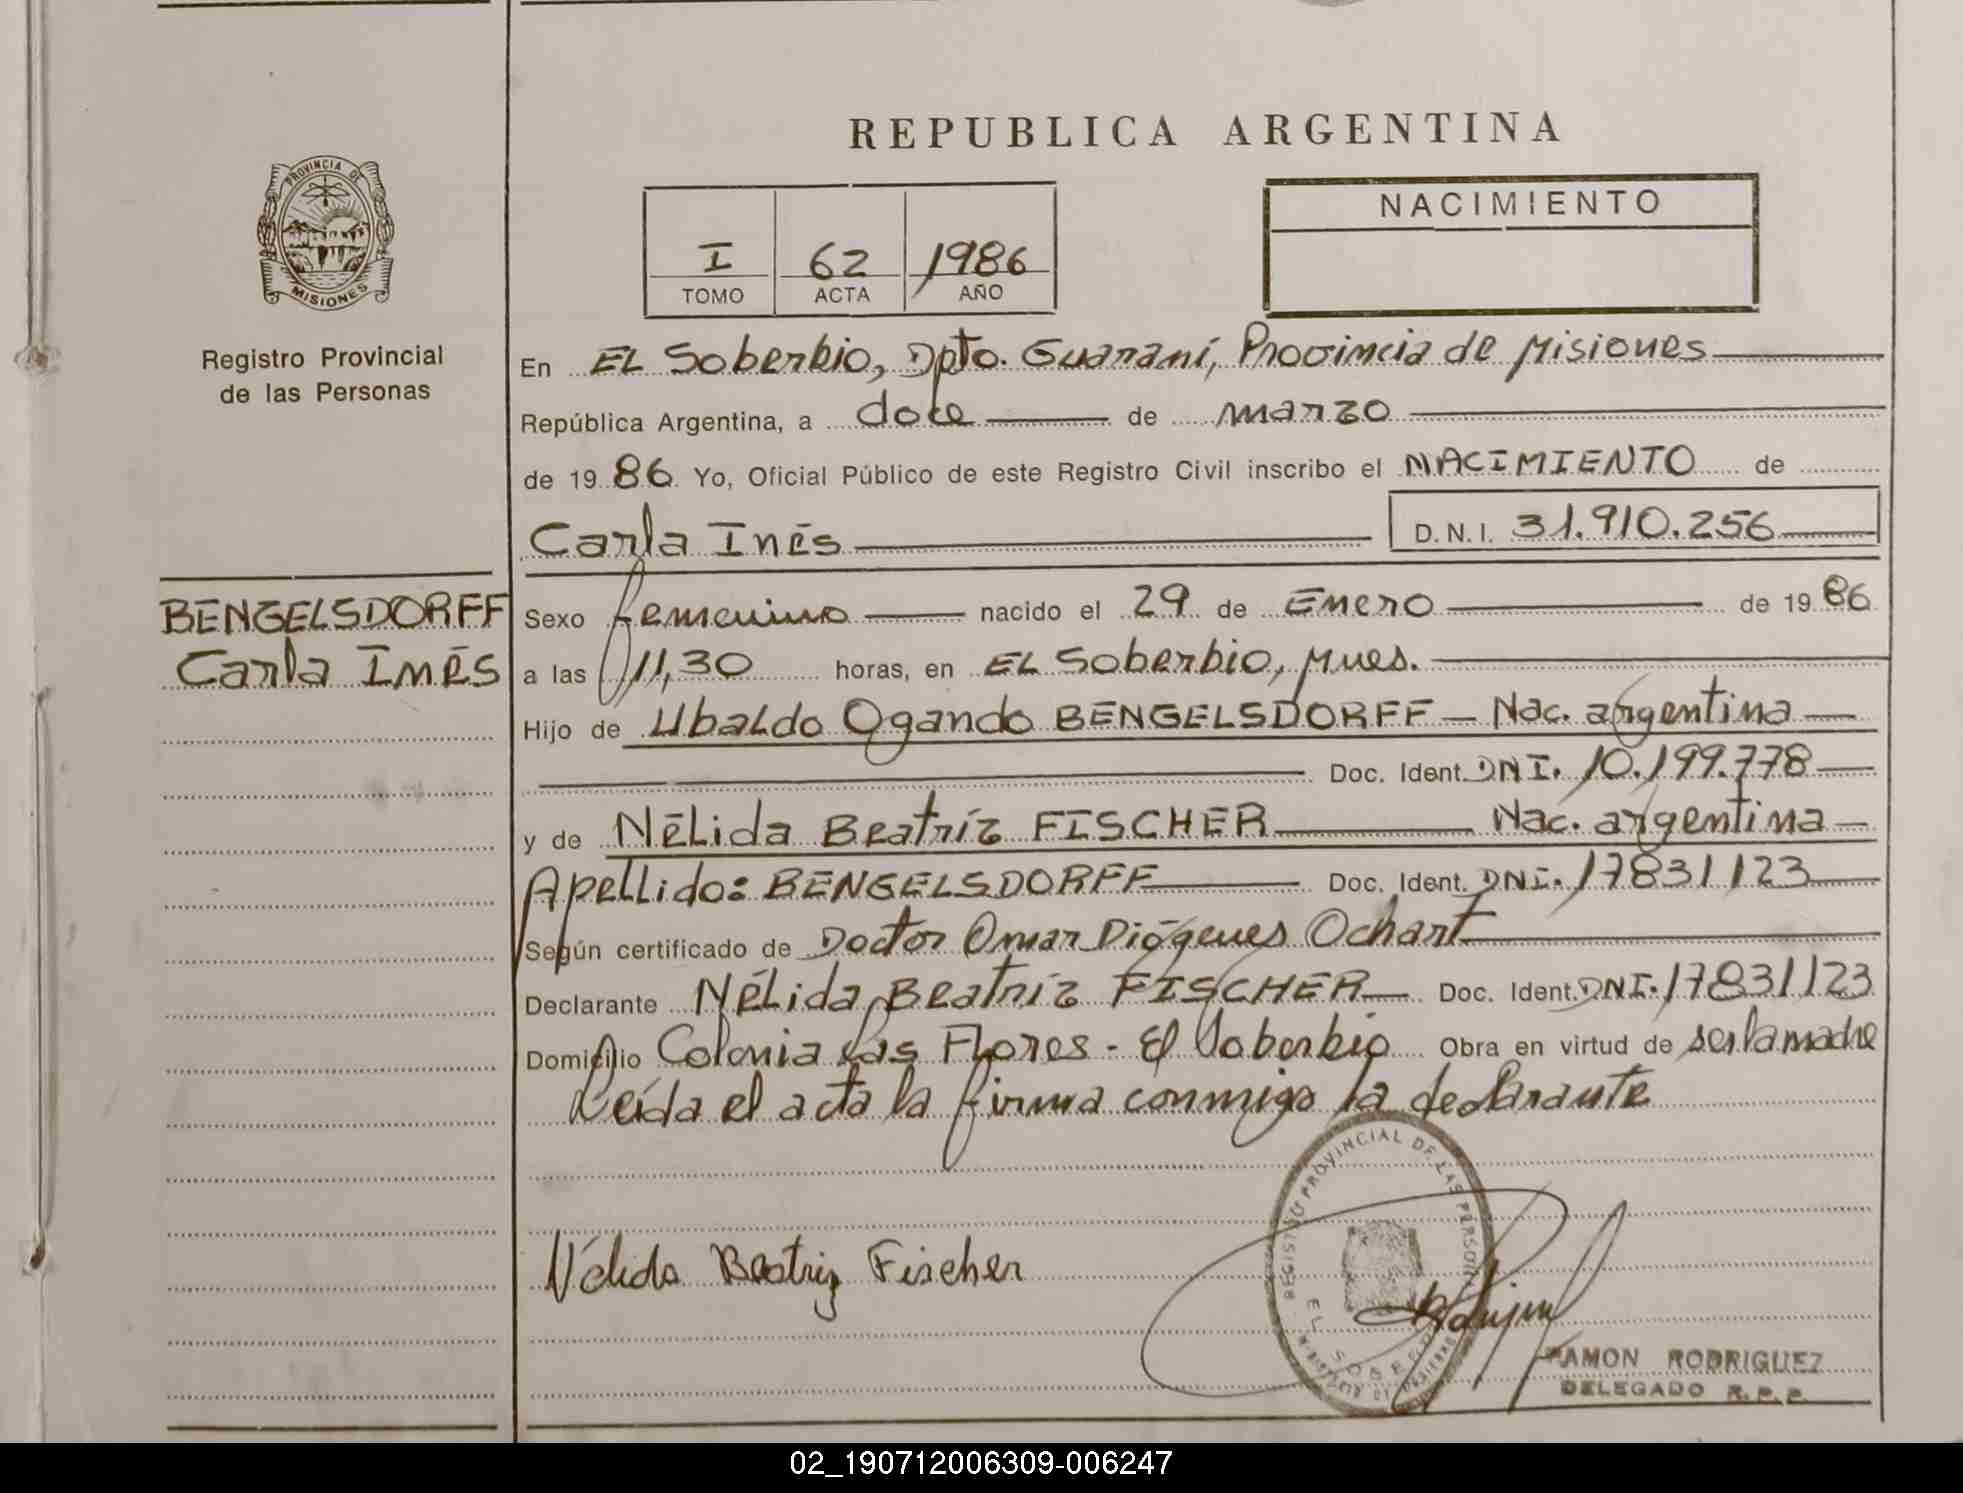 REPUBLICA ARGENTINA
PROVINCIA DE
MISIONES
Registro Provincial
de las Personas
I 62 1986
TOMO ACTA AÑO
NACIMIENTO
En EL Soberbio, Dpto. Guaraní, Provincia de Misiones
República Argentina, a doce de marzo
de 19 86 Yo, Oficial Público de este Registro Civil inscribo el NACIMIENTO de
Carla Inés D.N.I. 31.910.256
BENGELSDORFF
Carla Inés
Sexo femenino nacido el 29 de Enero de 19 86
a las 11,30 horas, en EL Soberbio, Mnes.
Hijo de Ubaldo Ogando BENGELSDORFF - Nac. argentina
Doc. Ident. DNI. 10.199.778
y de Nélida Beatríz FISCHER Nac. argentina
Apellido: BENGELSDORFF Doc. Ident. DNI. 17831123
Según certificado de Doctor Omar Diógenes Ochart
Declarante Nélida Beatríz FISCHER Doc. Ident. DNI. 17831123
Domicilio Colonia Las Flores - El Soberbio Obra en virtud de ser la madre
Leída el acta la firma conmigo la declarante
REGISTRO PROVINCIAL DE LAS PERSONAS
EL SOBERBIO
Nélida Beatriz Fischer
RAMON RODRIGUEZ
DELEGADO R.P.P.
02_190712006309-006247